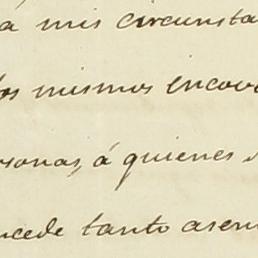 á mis circunsta
los mismos encova
rsonas, á quienes s
ncede tanto asen